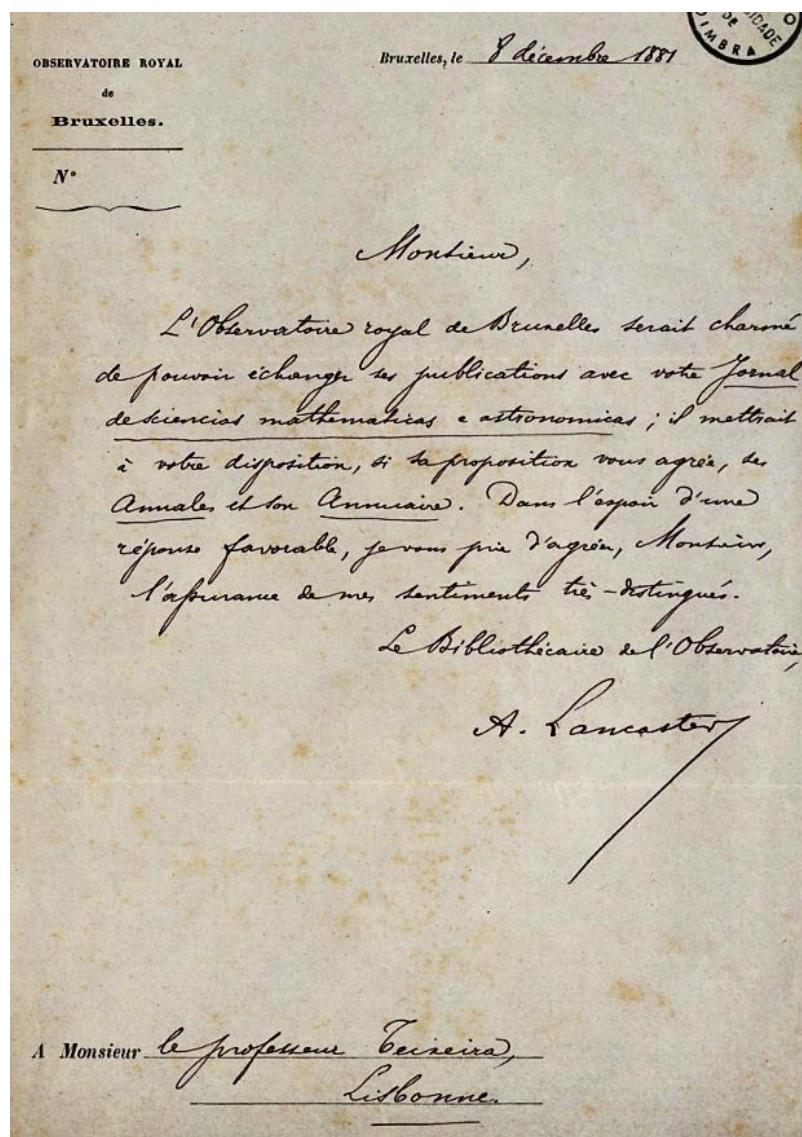 OBSERVATOIRE ROYAL
de
Bruxelles.
N°
Bruxelles, le 8 décembre 1881
DE
IMBRA
Monsieur,
L'Observatoire royal de Bruxelles serait charmé
de pouvoir échanger ses publications avec votre Jornal
de sciencias mathematicas e astronomicas ; il mettrait
à votre disposition, si sa proposition vous agrée, ses
Annales et son Annuaire. Dans l'espoir d'une
réponse favorable, je vous prie d'agréer, Monsieur,
l'assurance de mes sentiments très-distingués.
Le Bibliothécaire de l'Observatoire,
A. Lancaster
A Monsieur le professeur Teixeira,
Lisbonne.